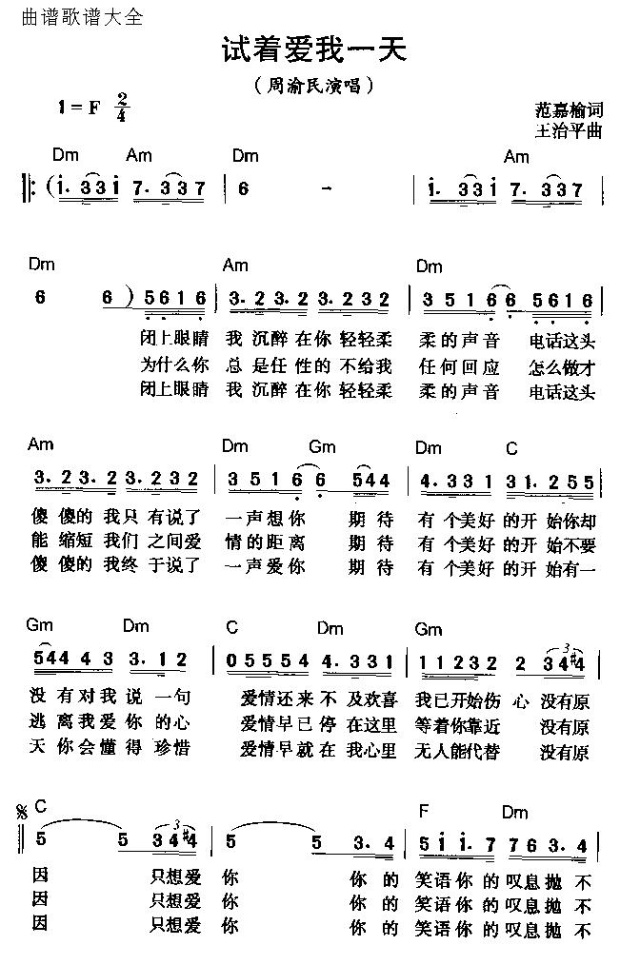 曲谱歌谱大全
试着爱我一天
（周渝民演唱）
1=F 2/4
范嘉榆词
王治平曲
Dm Am Dm Am
(i. 33i 7. 337 | 6 - | i. 33i 7. 337 |
Dm Am Dm
6 6) 5616 | 3. 23. 23. 232 | 3516 6 5616 |
闭上眼睛 我沉醉在你轻轻柔 柔的声音 电话这头
为什么你 总是任性的不给我 任何回应 怎么做才
闭上眼睛 我沉醉在你轻轻柔 柔的声音 电话这头
Am Dm Gm Dm C
3. 23. 23. 232 | 3516 6 544 | 4. 331 31. 255 |
傻傻的我只有说了 一声想你 期待 有个美好的开始你却
能缩短我们之间爱 情的距离 期待 有个美好的开始不要
傻傻的我终于说了 一声爱你 期待 有个美好的开始有一
Gm Dm C Dm Gm
54443 3. 12 | 055554 4. 331 | 11232 2 34#4 |
没有对我说一句 爱情还来不及欢喜 我已开始伤心 没有原
逃离我爱你的心 爱情早已停在这里 等着你靠近 没有原
天你会懂得珍惜 爱情早就在我心里 无人能代替 没有原
C F Dm
5 5 34#4 | 5 5 3. 4 | 5ii. 7 763. 4 |
因 只想爱你 你的 笑语你的叹息抛不
因 只想爱你 你的 笑语你的叹息抛不
因 只想爱你 你的 笑语你的叹息抛不